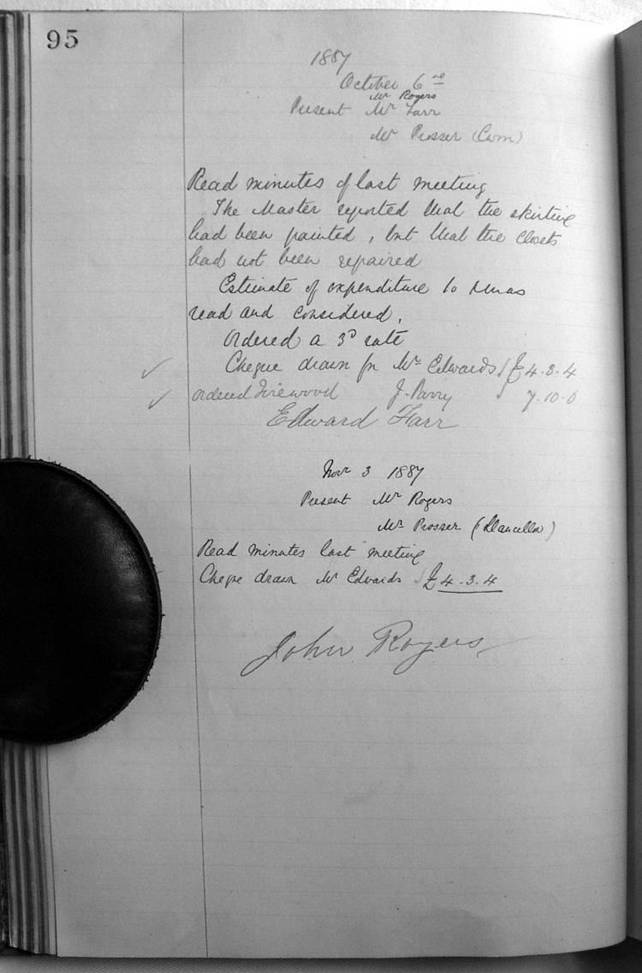 95
1887
October 6th
Mr Rogers
Present Mr Farr
Mr Prosser (Cwm)
Read minutes of last meeting
The Master reported that the skirting
had been painted, but that the closets
had not been repaired
Estimate of expenditure to Xmas
read and considered,
Ordered a 3d rate
Cheque drawn for Mr Edwards £4.3.4
ordered Firewood J. Parry 7.10.0
Edward Farr
Novr 3 1887
Present Mr Rogers
Mr Prosser (Llancello)
Read minutes last meeting
Cheque drawn Mr Edwards £4.3.4
John Rogers